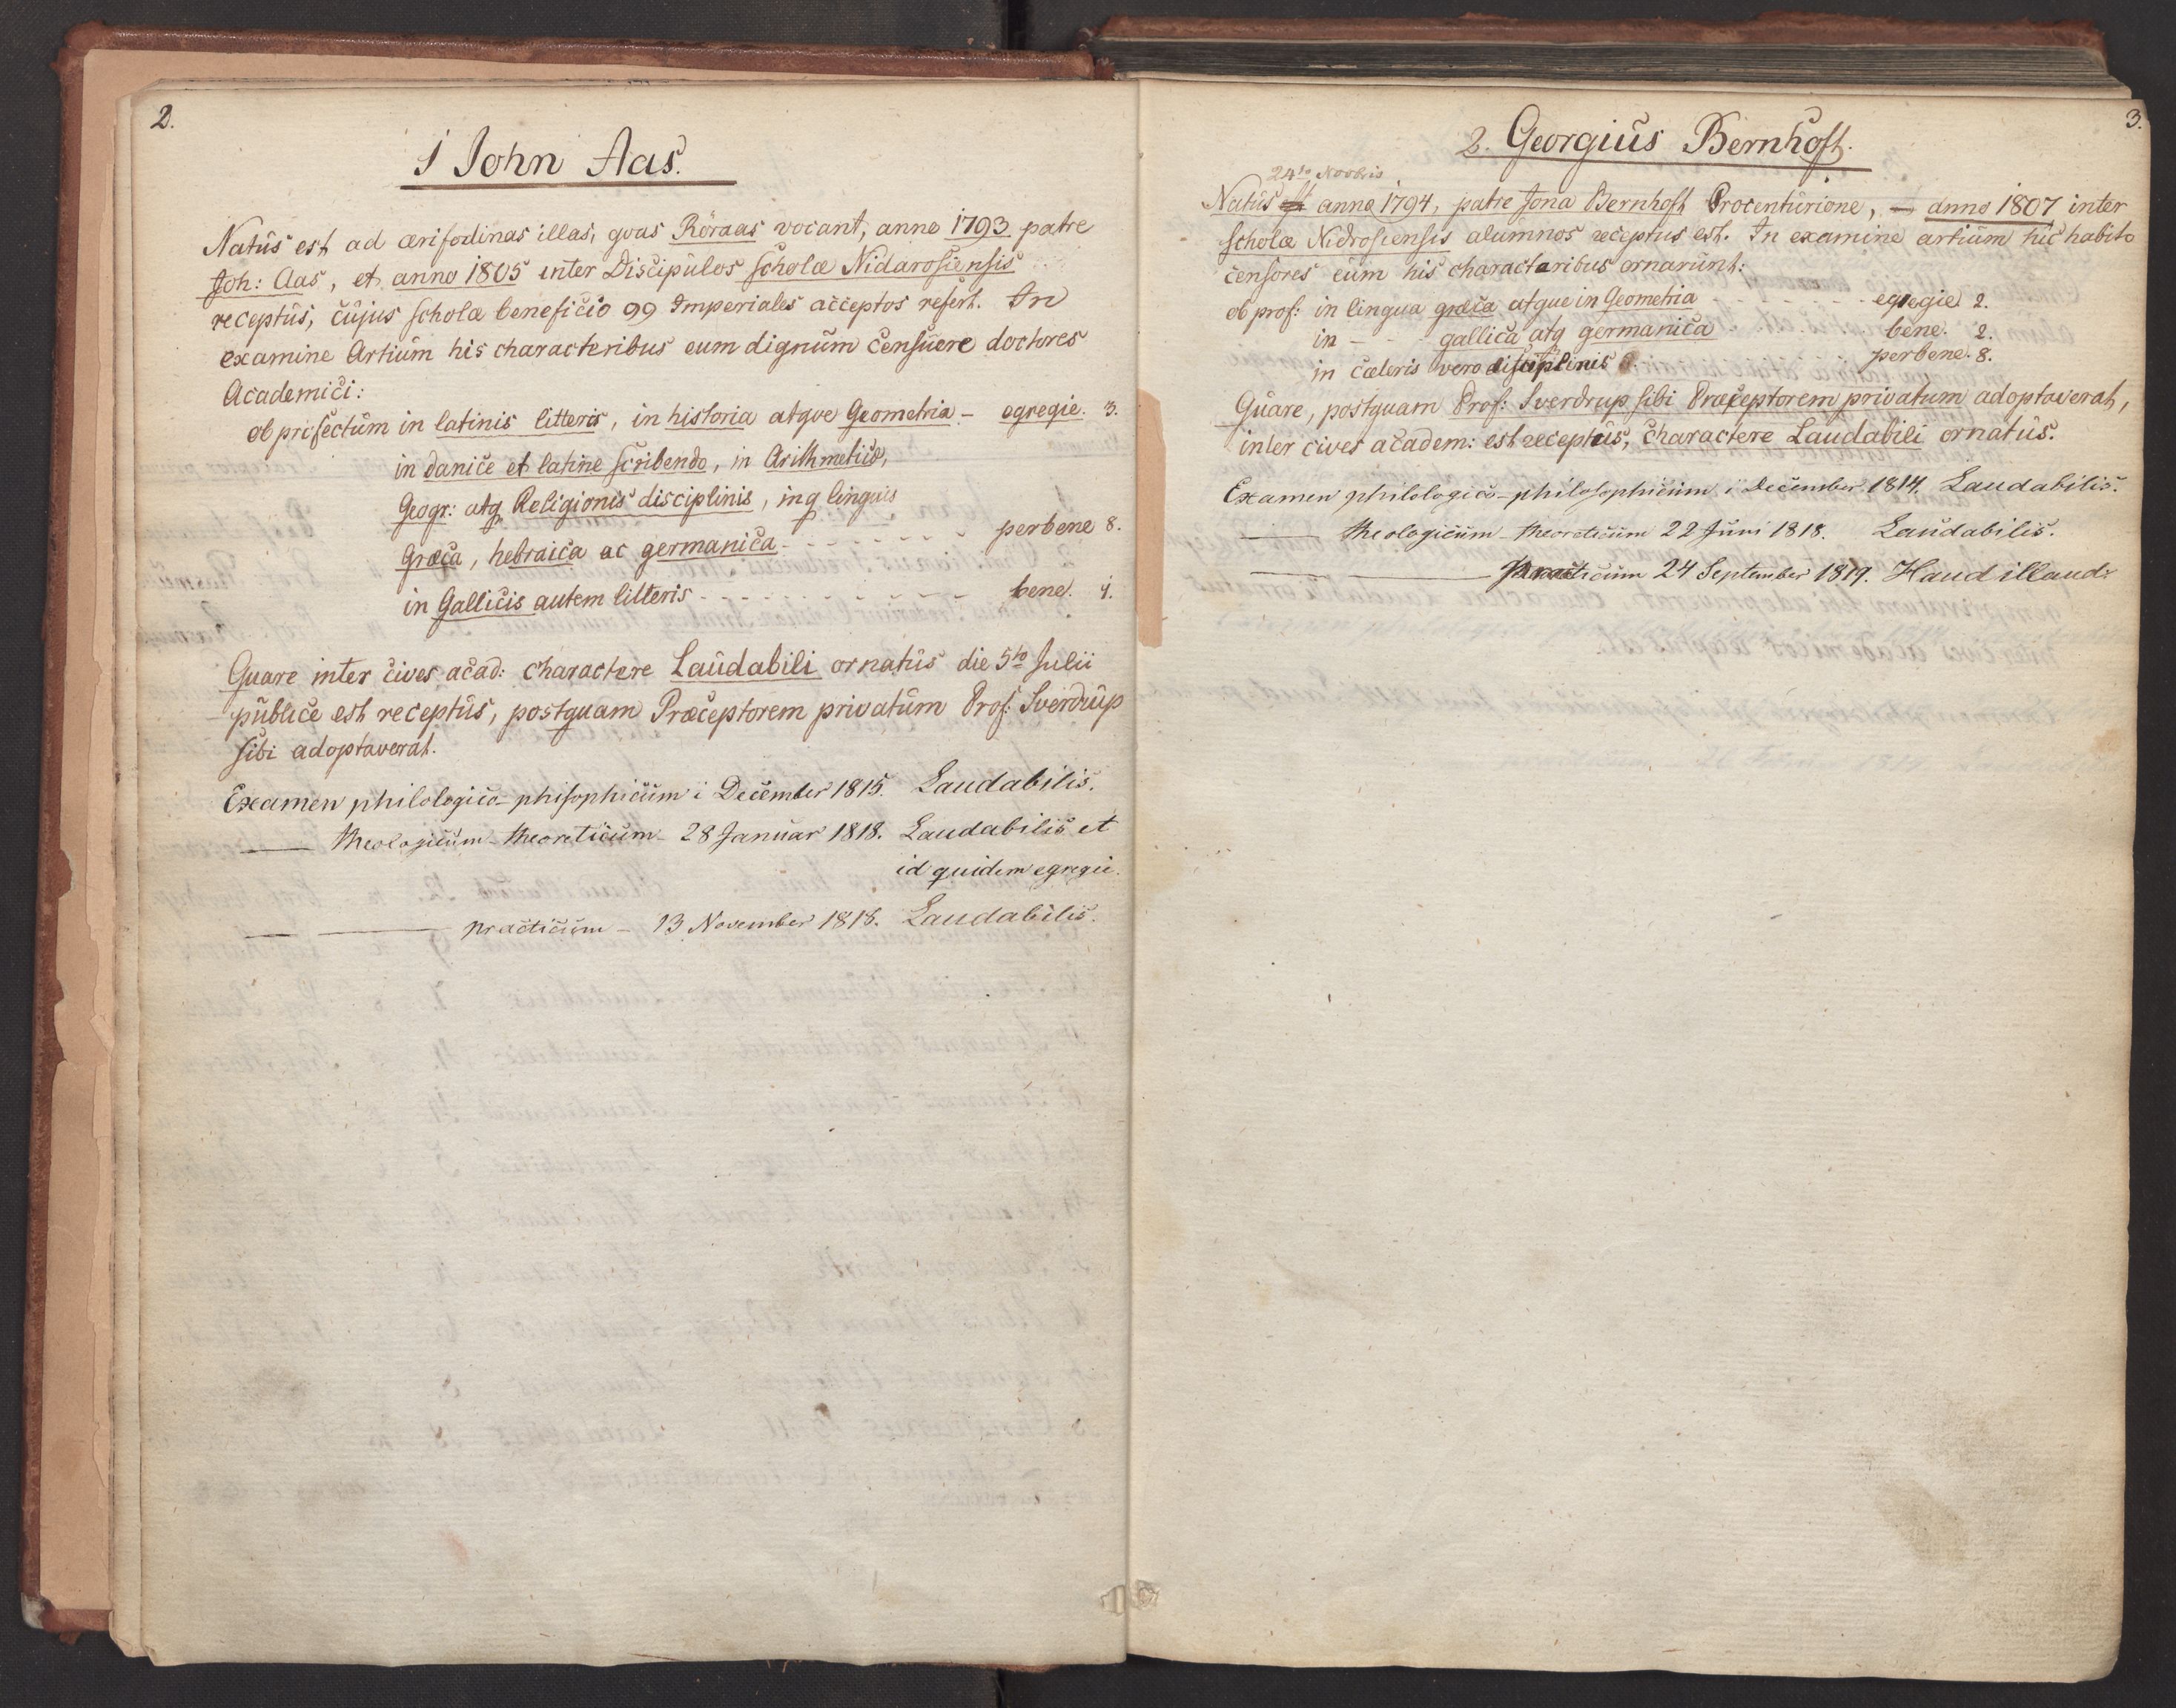 2.
1 John Aas.
Natus est ad ærifodinas illas, qvas Röraas vocant, anno 1793 patre
Joh: Aas, et anno 1805 inter Discipulos scholæ Nidarosiensis
receptus, cujus scholæ beneficio 99 Imperiales acceptos refert. In
examine Artium his characteribus eum dignum censuere doctores
Academici:
ob profectum in latinis litteris, in historia atqve Geometria - egregie. 3.
in danice et latine scribendo, in Arithmetica,
Geogr: atq Religionis disciplinis, inq linguis
Græca, hebraica ac germanica - - - - - - - perbene 8.
in Gallicis autem litteris - - - - - - - - - - bene. 1.
Quare inter cives acad: charactere Laudabili ornatus die 5to Julii
publice est receptus, postquam Præceptorem privatum Prof: Sverdrup
sibi adoptaverat.
Examen philologico-phisophicum i December 1815. Laudabilis.
—— theologicum-theoreticum - 28 Januar 1818. Laudabilis et
id quidem egregie.
—— —— practicum - 13 November 1818. Laudabilis.
3.
2. Georgius Bernhoft.
24to Novbris
Natus est anno 1794, patre Jona Bernhoft Procenturione, — anno 1807 inter
scholæ Nidrosiensis alumnos receptus est. In examine artium hic habito
censores eum his characteribus ornarunt:
ob prof: in lingua græca atque in Geometria - - - - - - - egregie 2.
in - - - gallica atq germanica - bene. 2.
in cæteris vero disciplinis perbene. 8.
Quare, postquam Prof: Sverdrup sibi Præceptorem privatum adoptaverat,
inter cives academ: est receptus, charactere Laudabili ornatus.
Examen philologico-philosophicum i December 1814. Laudabilis.
—— theologicum-theoreticum 22 Juni 1818. Laudabilis.
—— —— practicum 24 September 1819. Haud illaud: